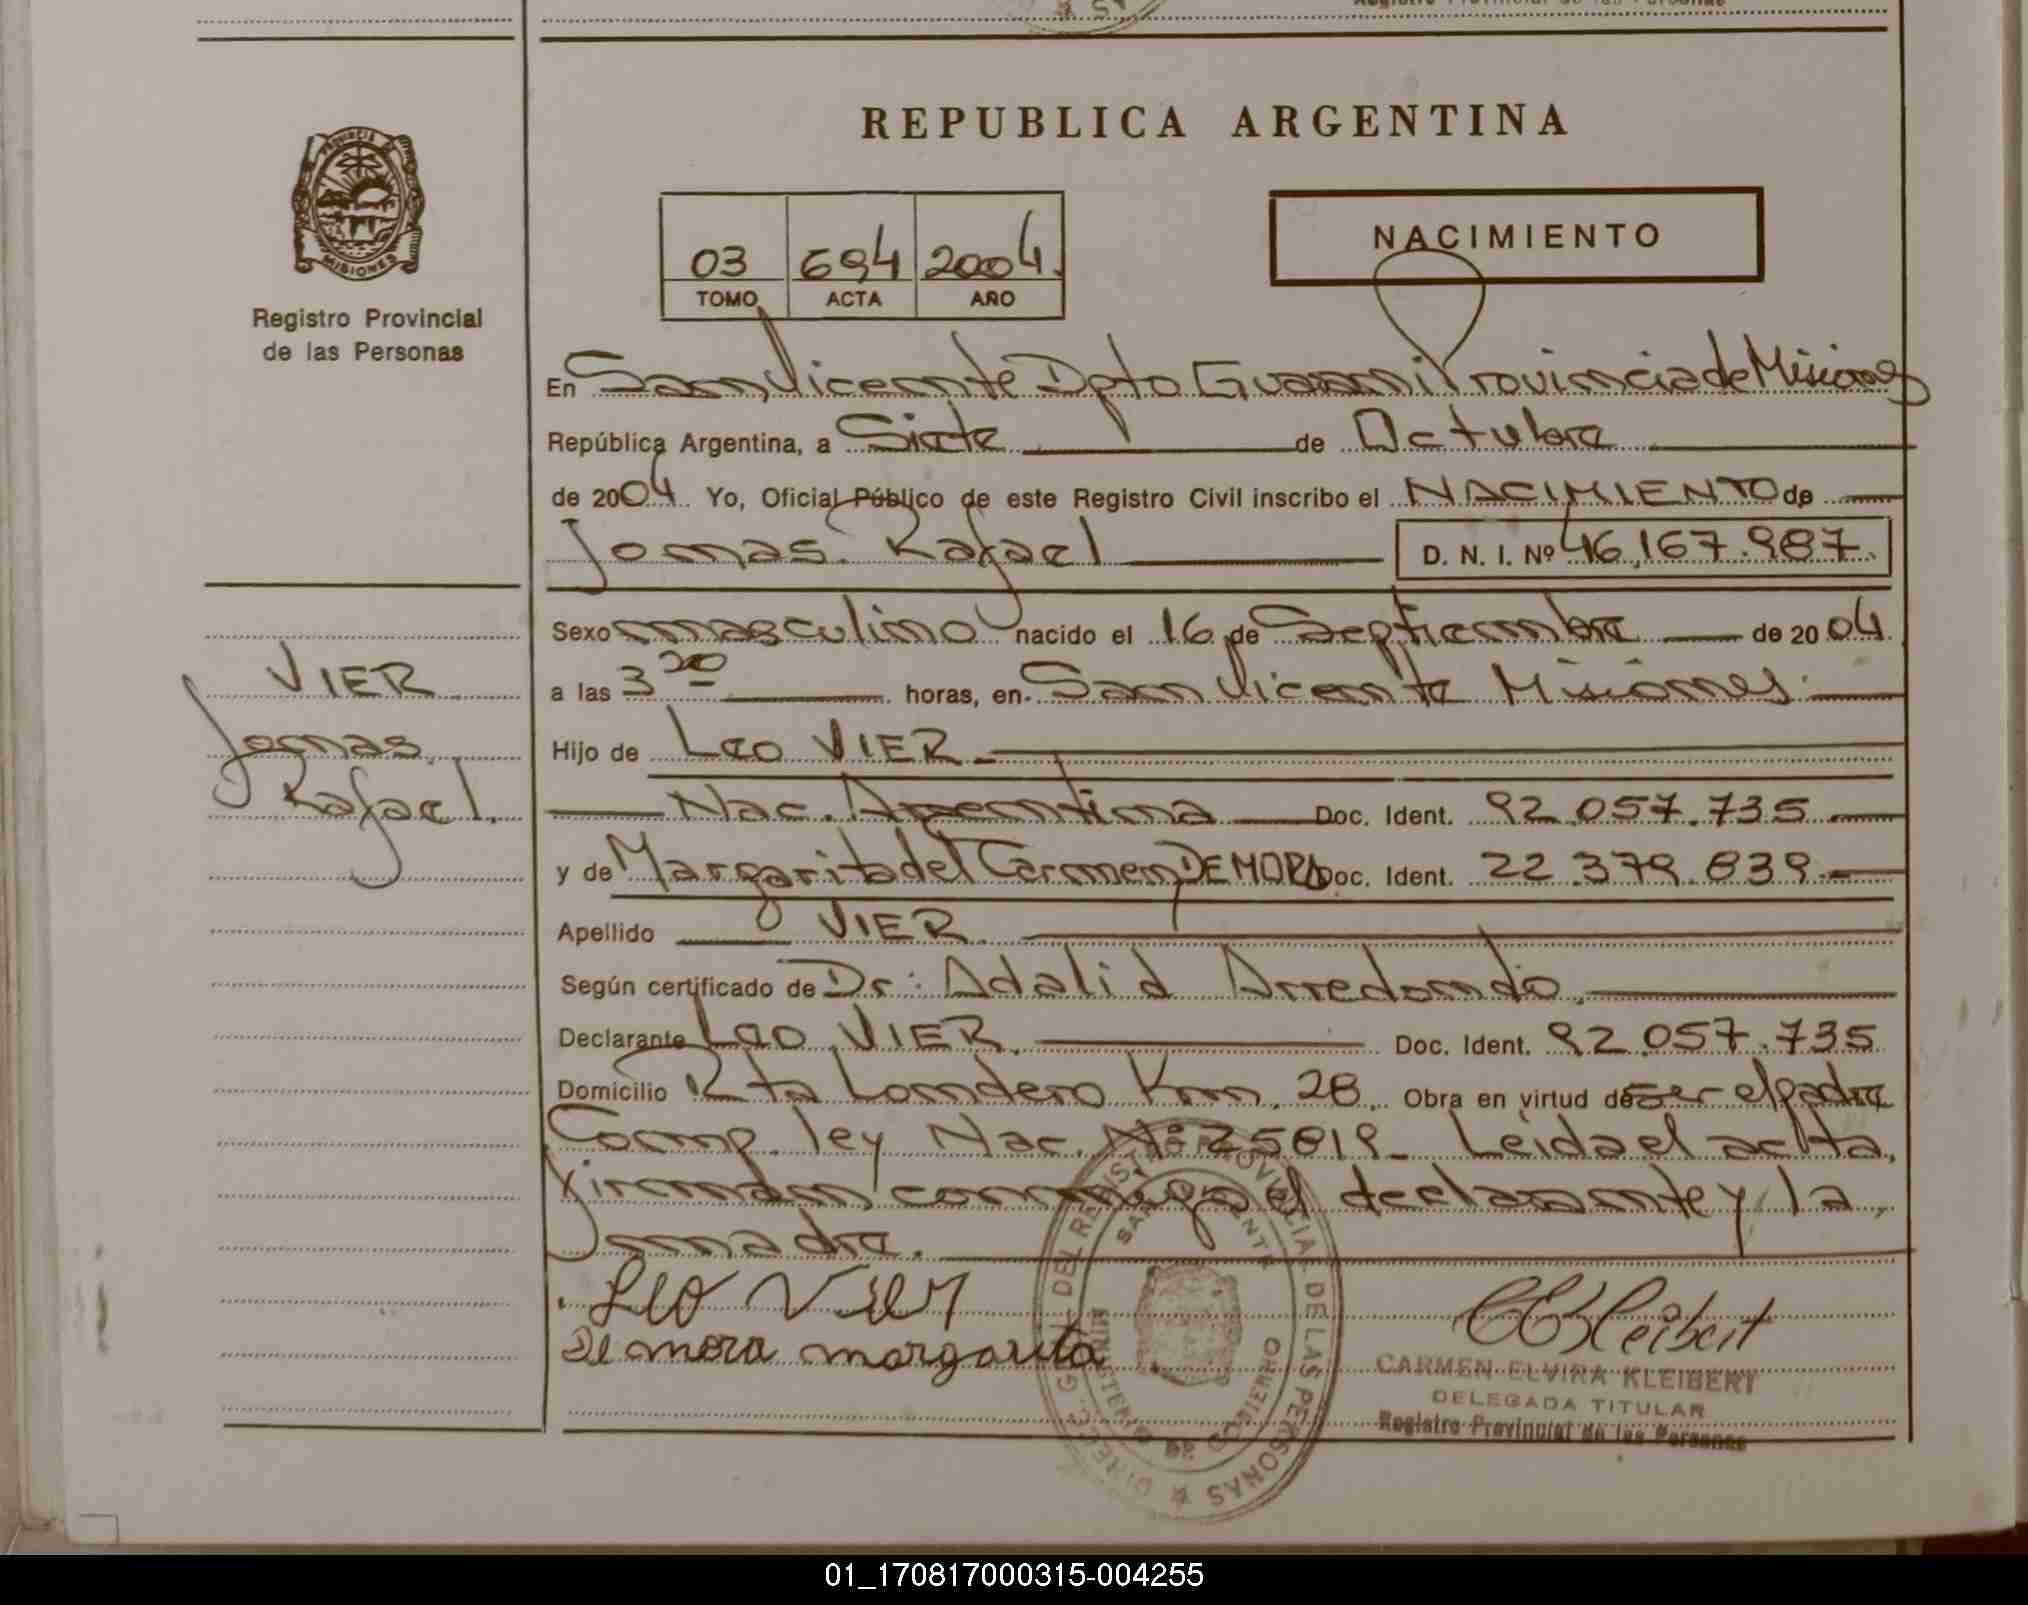 REPUBLICA ARGENTINA
PROVINCIA
MISIONES
Registro Provincial
de las Personas
NACIMIENTO
03 694 2004.
TOMO ACTA AÑO
En San Vicente Dpto Guarani Provincia de Misiones
República Argentina, a Siete de Octubre
de 2004 Yo, Oficial Público de este Registro Civil inscribo el NACIMIENTO de
Jomas Rafael D. N. I. Nº 46.167.987.
Sexo masculino nacido el 16 de Septiembre de 2004
a las 3 20 horas, en San Vicente Misiones
Hijo de Leo VIER
Nac. Argentina Doc. Ident. 92.057.735
y de Margarita del Carmen DE MORA Doc. Ident. 22.379.839
Apellido VIER
Según certificado de Dr: Adalid Arredondo.
Declarante Leo VIER. Doc. Ident. 92.057.735
Domicilio Rta Londero Km. 28. Obra en virtud de ser el padre
Comp. ley Nac. Nº 25819_ Leida el acta,
firman conmigo el declarante y la
madre.
VIER
Jomas
Rafael.
Leo Vier
De mora margarita
CEKleibert
CARMEN ELVIRA KLEIBERT
DELEGADA TITULAR
Registro Provincial de las Personas
DIRECC. GRAL. DEL REGISTRO PROVINCIAL DE LAS PERSONAS
SAN VICENTE
MINISTERIO DE GOBIERNO
01_170817000315-004255